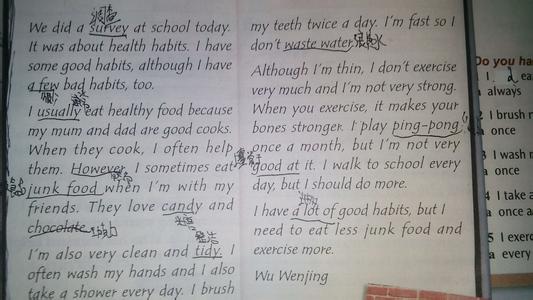 调查
We did a survey at school today.
It was about health habits. I have
some good habits, although I have
a few bad habits, too.
I usually eat healthy food because
my mum and dad are good cooks.
When they cook, I often help
them. However, I sometimes eat
junk food when I'm with my
friends. They love candy and
chocolate.
I'm also very clean and tidy. I
often wash my hands and I also
take a shower every day. I brush
my teeth twice a day. I'm fast so I
don't waste water.
Although I'm thin, I don't exercise
very much and I'm not very strong.
When you exercise, it makes your
bones stronger. I play ping-pong
once a month, but I'm not very
good at it. I walk to school every
day, but I should do more.
I have a lot of good habits, but I
need to eat less junk food and
exercise more.
Wu Wenjing
Do you ha
1 I
a always
I brush m
a once
I wash m
once
4 I take a
a once a
5 I exerc
a every